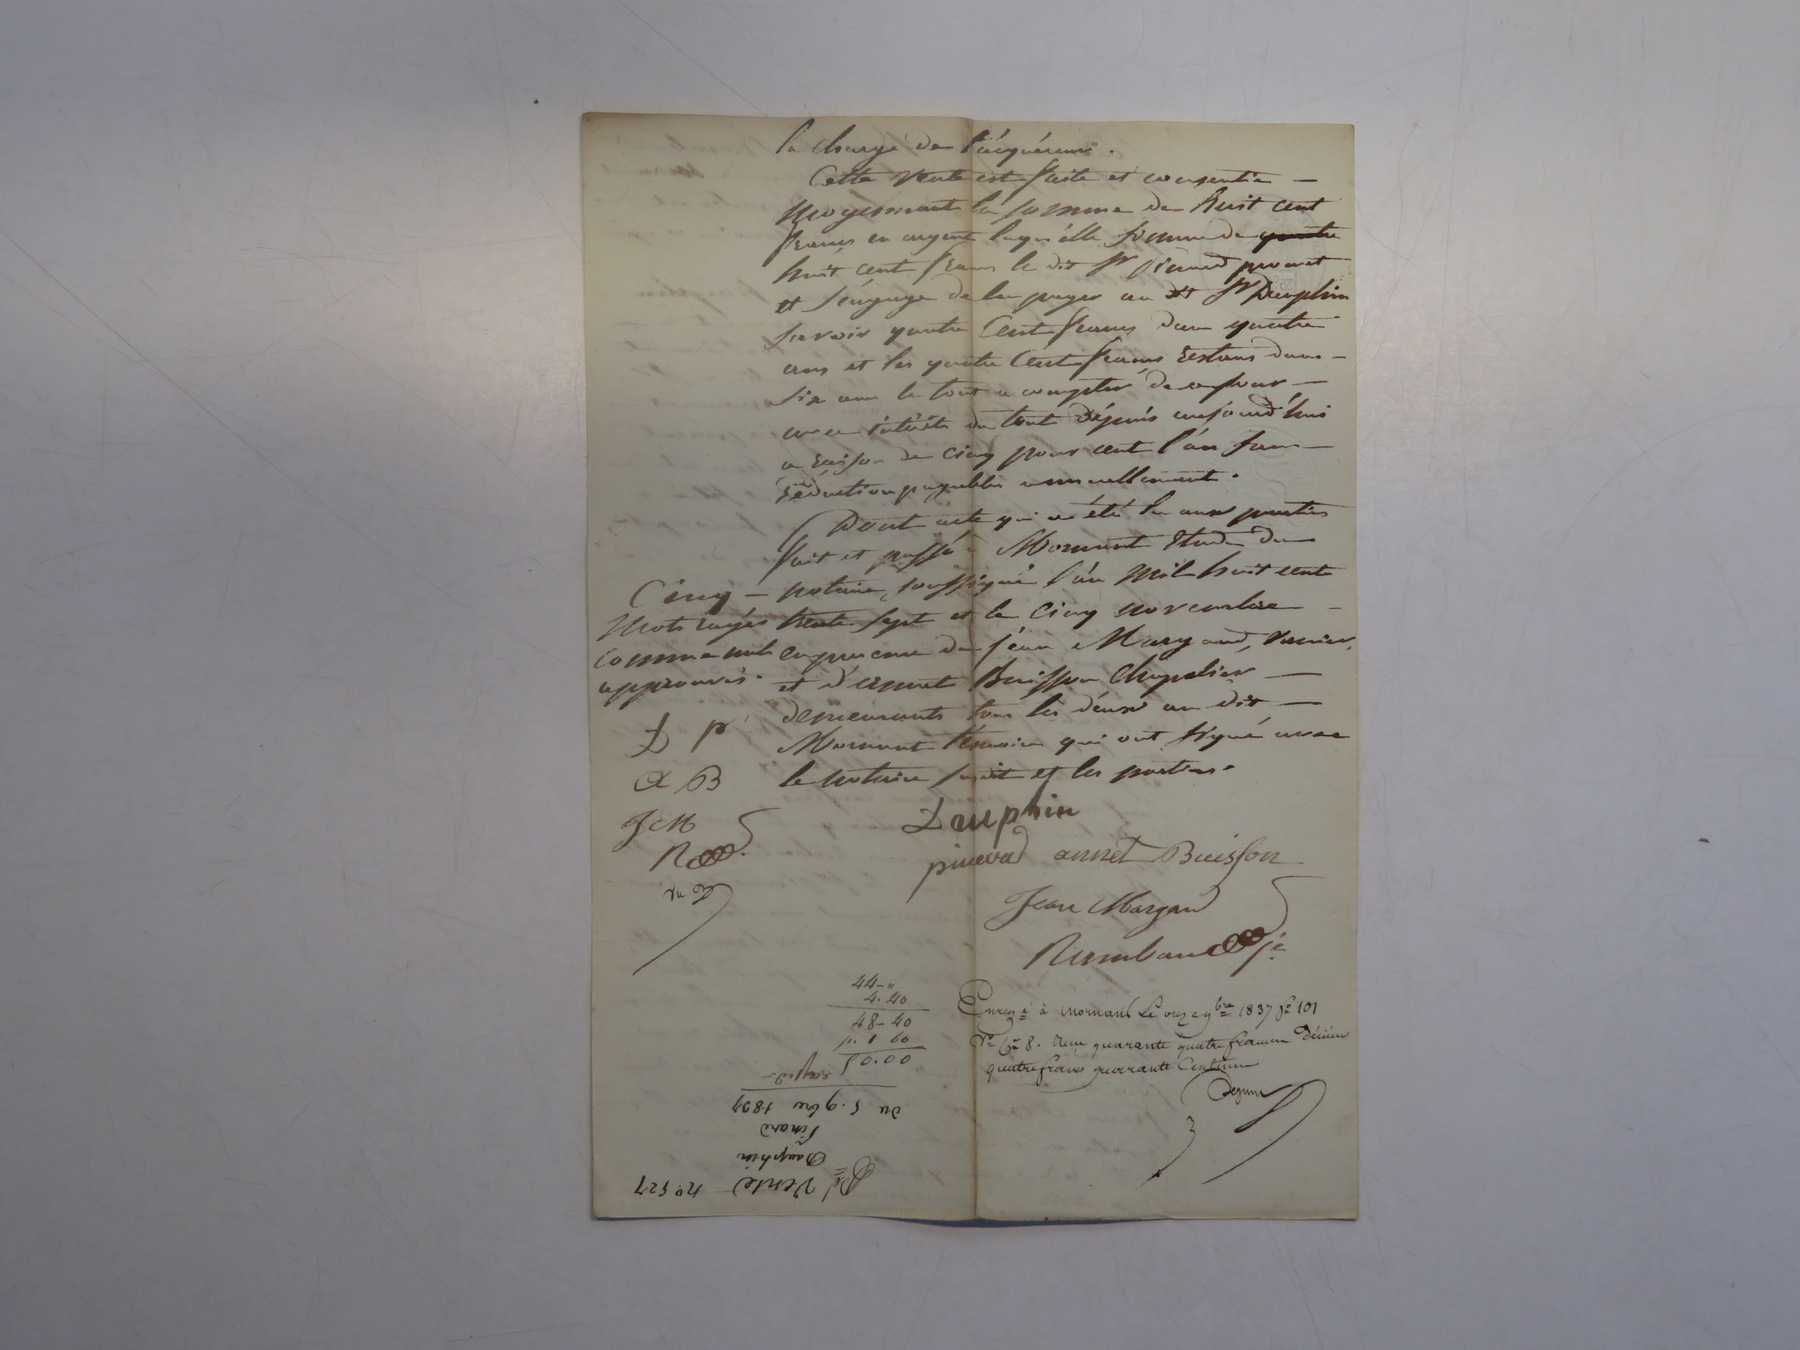 la charge de l'acquéreur.
Cette vente est faite et consentie —
moyennant la somme de huit cent
francs en argent laquelle somme de quatre
huit cent francs le dit Sr Pinard promet
et s'engage de la payer au dit Sr Dauphin
savoir quatre cent francs dans quatre
ans et les quatre cent francs restans dans —
six ans le tout a compter de ce jour —
avec intérêts du tout dépuis aujourd'hui
a raison de cinq pour cent l'an sans —
réduction payables annuellement.
Dont acte qui a été lu aux parties
fait et passé a Mornant étude du
notaire soussigné l'an mil huit cent
trente sept et le cinq novembre —
en présence de Jean Margand,
et d'annet Buisson chapelier —
demeurants tous les deux au dit —
Mornant témoins qui ont signé avec
le notaire susdit et les parties.
Cinq —
mots rayés
comme nuls
approuvés.
D P
a B
J M
R
Dauphin
pinard annet Buisson
Jean Margand
Rambaud
44-"
4.40
48-40
1 60
50.00
Enregé à Mornant le onze 9bre 1837 fo 101
Ro Ce 8. Reçu quarante quatre francs Décime
quatre francs quarante Centimes
du 5. 9bre 1837
Pinard
à
Dauphin
Vente
no 527